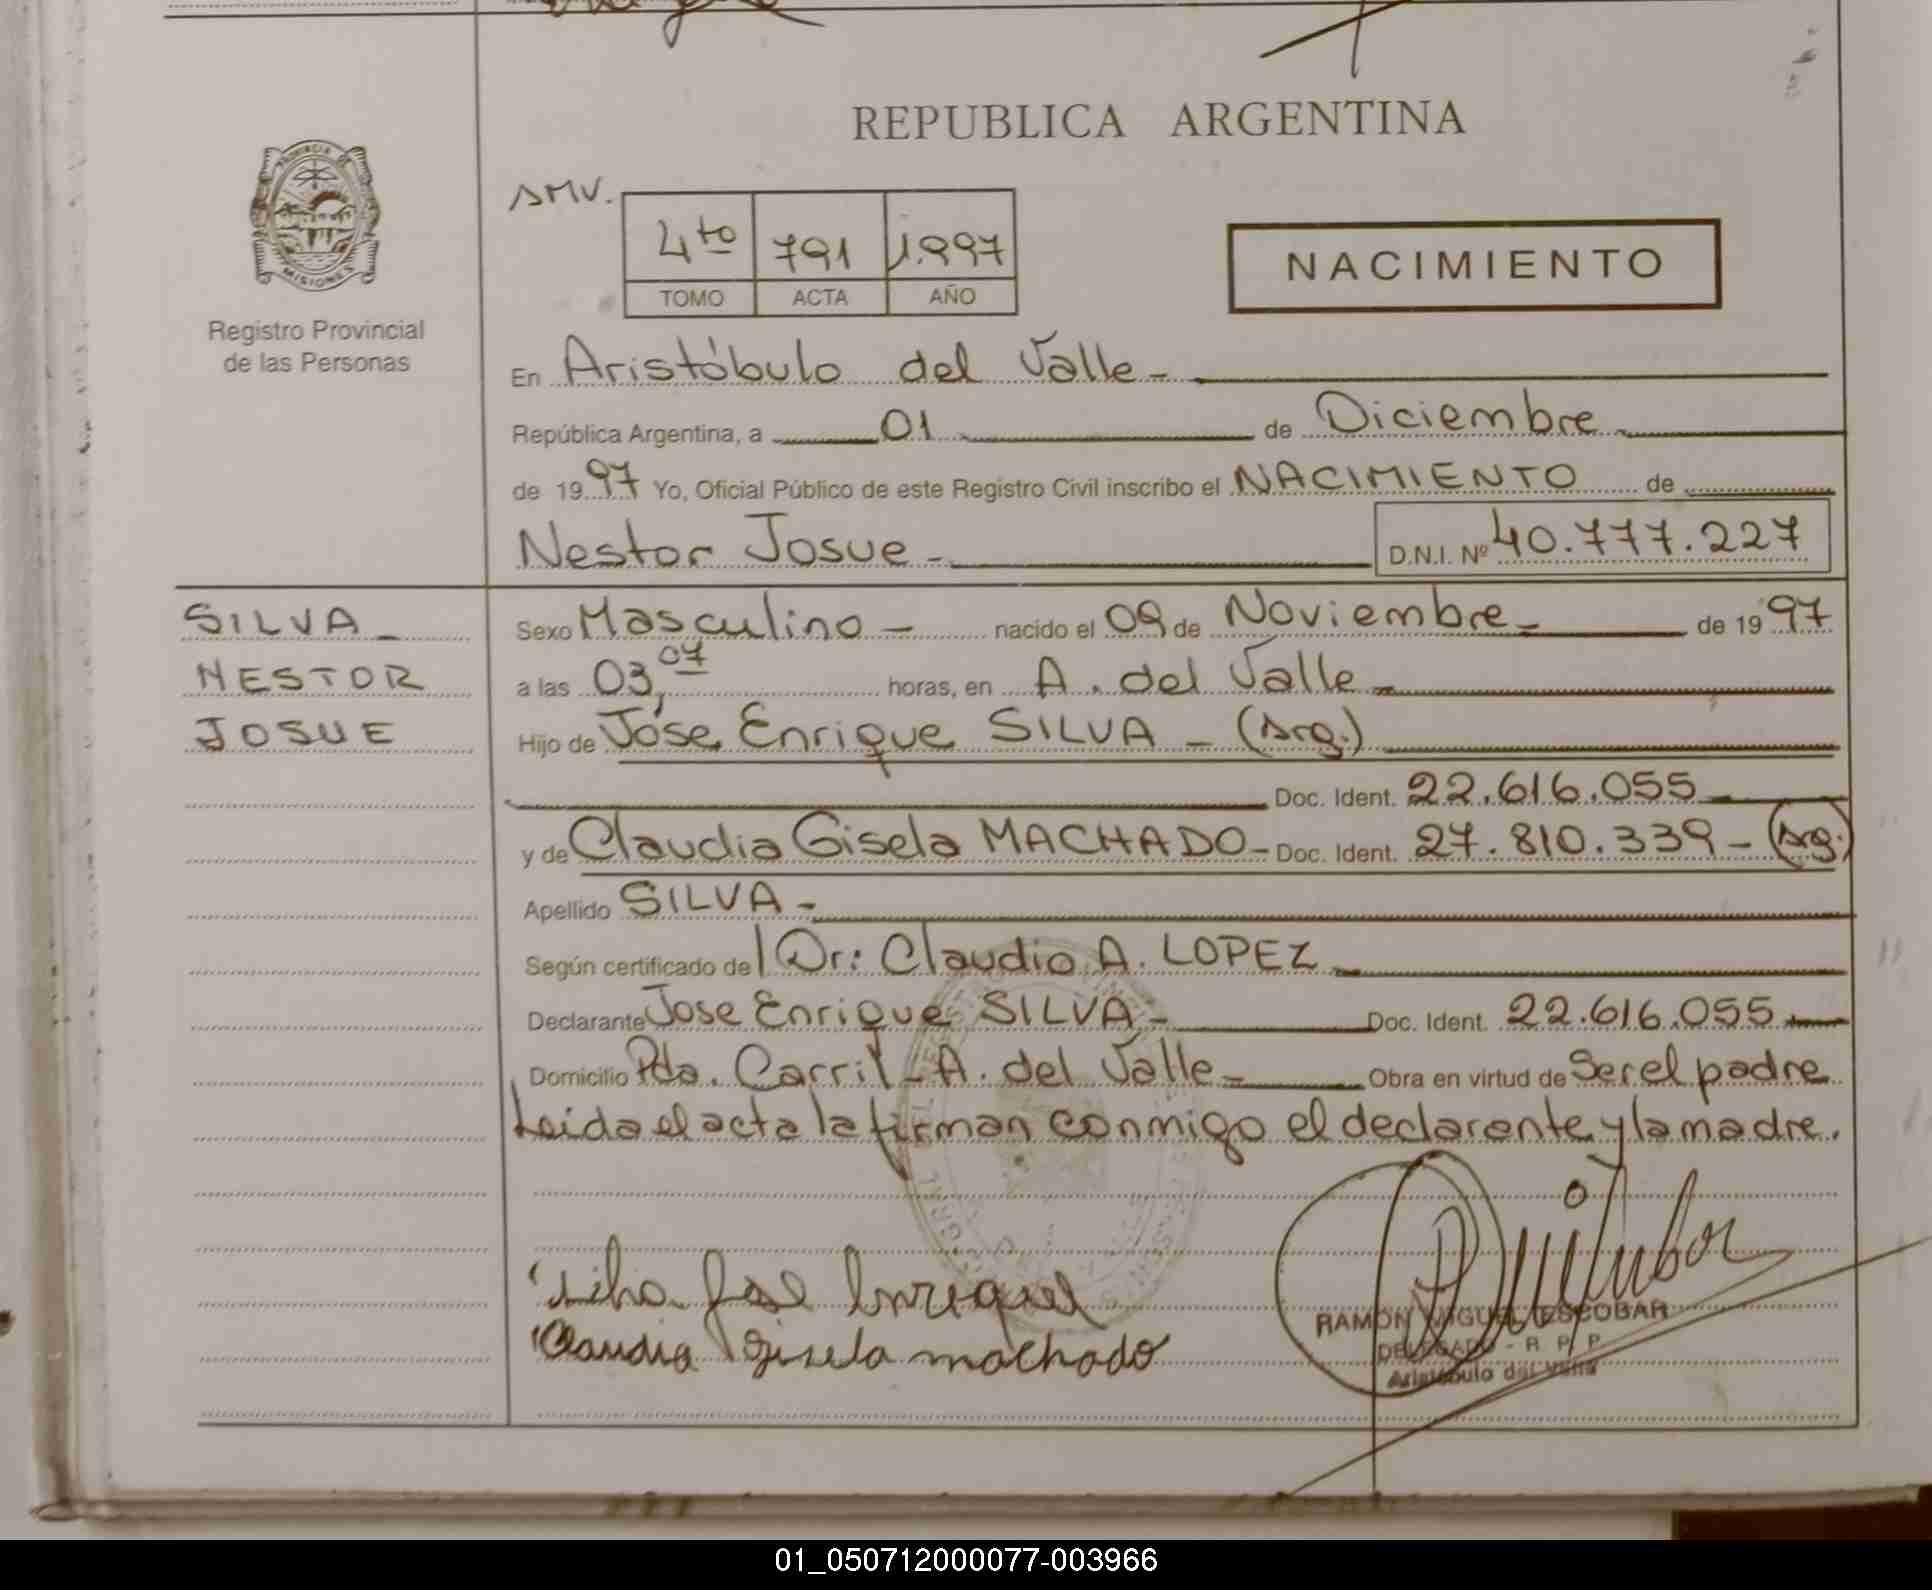 REPUBLICA ARGENTINA
PROVINCIA DE
MISIONES
Registro Provincial
de las Personas
SMV.
4to 791 1.997
TOMO ACTA AÑO
NACIMIENTO
En Aristóbulo del Valle -
República Argentina, a 01 de Diciembre
de 1997 Yo, Oficial Público de este Registro Civil inscribo el NACIMIENTO de
Nestor Josue - D.N.I. Nº 40.777.227
SILVA -
NESTOR
JOSUE
Sexo Masculino - nacido el 09 de Noviembre - de 1997
a las 03,07 horas, en A. del Valle -
Hijo de José Enrique SILVA - (Arg.)
Doc. Ident. 22.616.055
y de Claudia Gisela MACHADO - Doc. Ident. 27.810.339 - (Arg.)
Apellido SILVA -
Según certificado del Dr: Claudio A. LOPEZ
Declarante Jose Enrique SILVA - Doc. Ident. 22.616.055
Domicilio Pda. Carril - A. del Valle - Obra en virtud de Ser el padre
Leida el acta la firman conmigo el declarante y la madre.
Silva Jose Enrique
Claudia Gisela machado
RAMON MIGUEL ESCOBAR
DELEGADO - R. P. P.
Aristóbulo del Valle
01_050712000077-003966